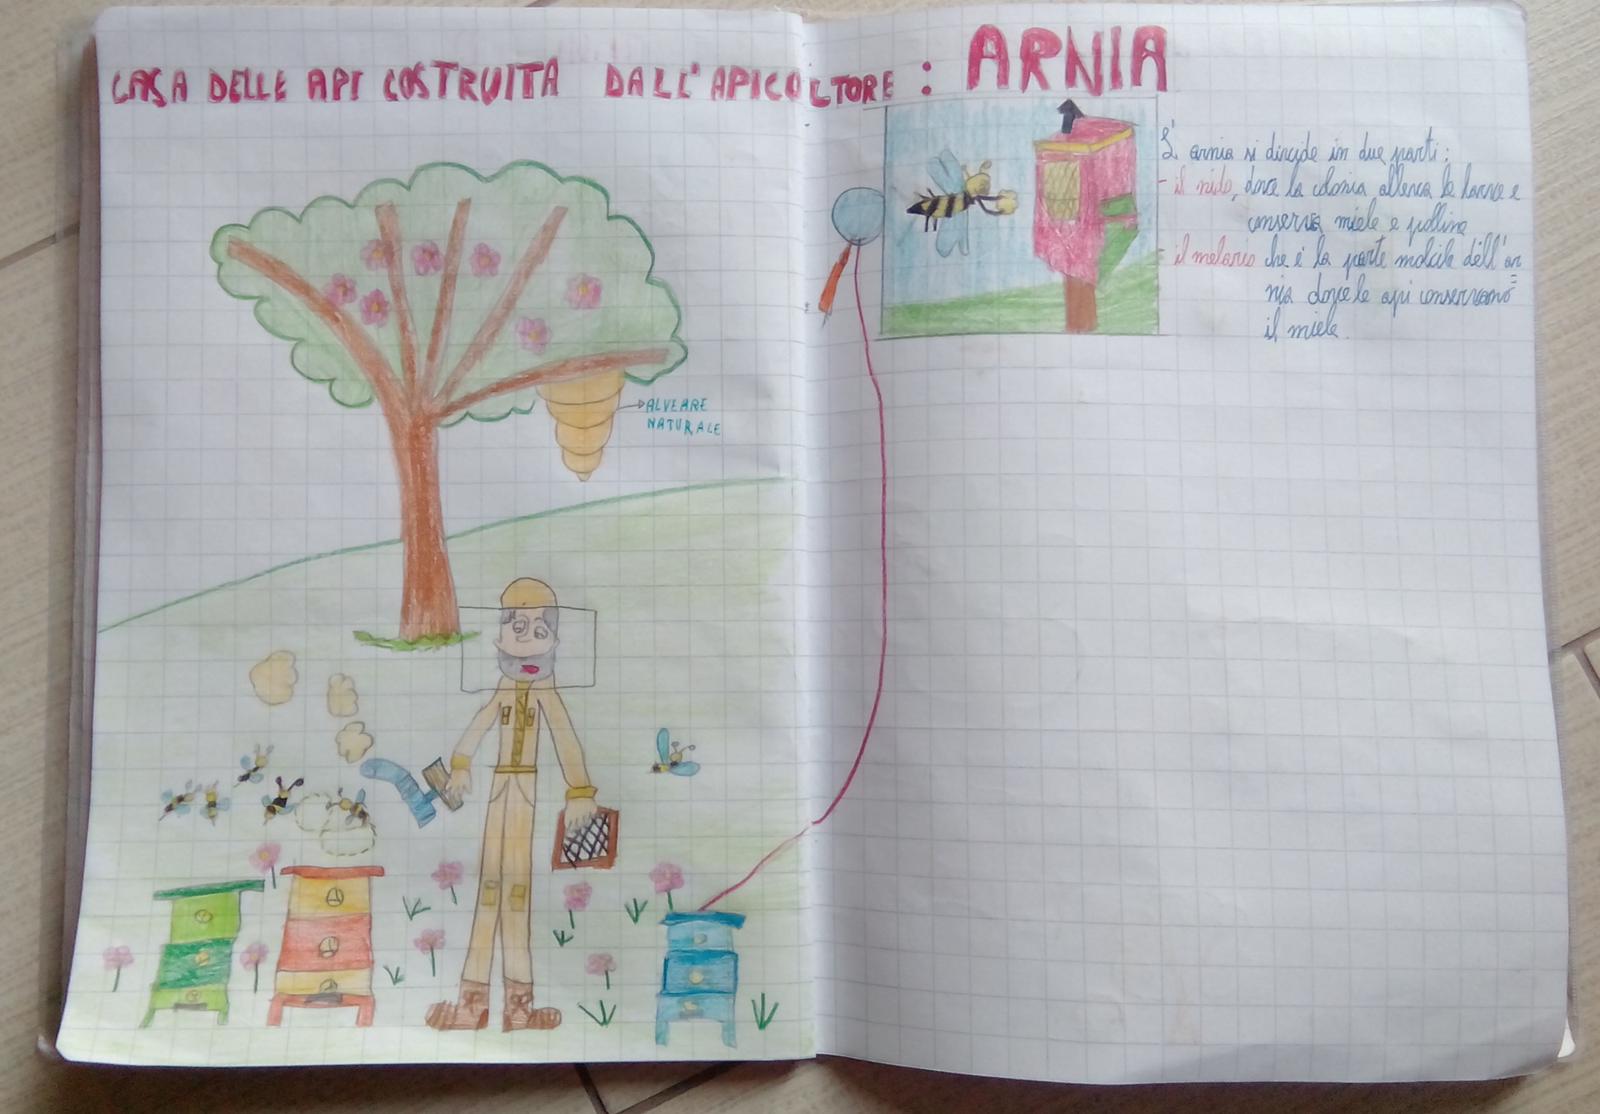 CASA DELLE API COSTRUITA DALL'APICOLTORE : ARNIA
L'arnia si divide in due parti:
- il nido, dove la colonia alleva le larve e
conserva miele e polline
- il melario che è la parte mobile dell'ar
nia dove le api conservano
il miele.
ALVEARE
NATURALE